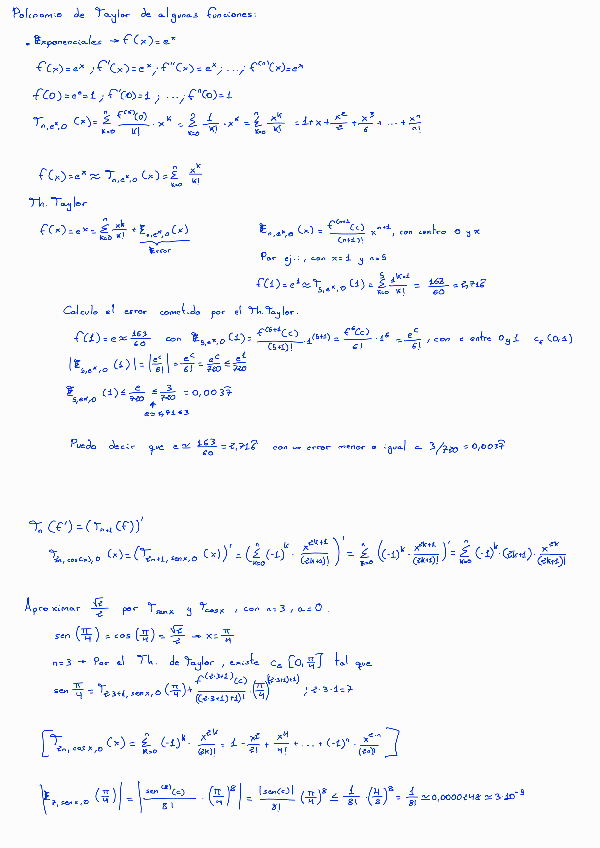 Polinomio de Taylor de algunas funciones:
• Exponenciales → f(x)=eˣ
f(x)=eˣ ; f'(x)=eˣ ; f''(x)=eˣ ; ... ; f⁽ⁿ⁾(x)=eˣ
f(0)=e⁰=1 ; f'(0)=1 ; ... ; fⁿ(0)=1
T_{n,eˣ,0} (x) = Σ_{k=0}^{n} f⁽ᵏ⁾(0)/k! · xᵏ = Σ_{k=0}^{n} 1/k! · xᵏ = Σ_{k=0}^{n} xᵏ/k! = 1+x+x²/2+x³/6+...+xⁿ/n!
f(x)=eˣ ≈ T_{n,eˣ,0} (x) = Σ_{k=0}^{n} xᵏ/k!
Th. Taylor
f(x)=eˣ = Σ_{k=0}^{n} xᵏ/k! + E_{n,eˣ,0}(x)
Error
E_{n,eˣ,0} (x) = f⁽ⁿ⁺¹⁾(c)/(n+1)! xⁿ⁺¹, con c entre 0 y x
Por ej.:, con x=1 y n=5
f(1)=e¹ ≈ T_{5,eˣ,0} (1) = Σ_{k=0}^{5} 1ᵏ/k! = 163/60 = 2,716
Calculo el error cometido por el Th. Taylor.
f(1)=e ≈ 163/60 con E_{5,eˣ,0} (1) = f⁽⁵⁺¹⁾(c)/(5+1)! · 1⁽⁵⁺¹⁾ = f⁶(c)/6! · 1⁶ = eᶜ/6! , con c entre 0 y 1 c ε (0,1)
|E_{5,eˣ,0} (1)| = |eᶜ/6!| = eᶜ/6! = eᶜ/720 ≤ e¹/720
E_{5,eˣ,0} (1) ≤ e/720 ≤ 3/720 = 0,0037
↑
e≈2,71≤3
Puedo decir que e ≈ 163/60 = 2,716 con un error menor o igual a 3/720 = 0,0037
Tₙ (f') = (Tₙ₊₁ (f))'
T_{2n,cos(x),0} (x) = (T_{2n+1,senx,0} (x))' = (Σ_{k=0}^{n} (-1)ᵏ · x²ᵏ⁺¹/(2k+1)!)' = Σ_{k=0}^{n} ((-1)ᵏ · x²ᵏ⁺¹/(2k+1)!)' = Σ_{k=0}^{n} (-1)ᵏ · (2k+1) · x²ᵏ/(2k+1)!
Aproximar √2/2 por T_{senx} y T_{cosx} , con n=3, a=0.
sen (π/4) = cos (π/4) = √2/2 → x=π/4
n=3 → Por el Th. de Taylor, existe c ε [0,π/4] tal que
sen π/4 = T_{2·3+1,senx,0} (π/4) + f⁽²·³⁺¹⁾(c)/((2·3+1)+1)! · (π/4)^{((2·3+1)+1)} ; 2·3+1=7
[T_{2n,cosx,0} (x) = Σ_{k=0}^{n} (-1)ᵏ · x²ᵏ/(2k)! = 1 - x²/2! + x⁴/4! + ... + (-1)ⁿ · x²ⁿ/(2n)!]
|E_{7,senx,0} (π/4)| = |sen⁽⁸⁾(c)/8! · (π/4)⁸| = |sen(c)|/8! (π/4)⁸ ≤ 1/8! · (4/4)⁸ = 1/8! ≃ 0,0000248 ≃ 3·10⁻⁵